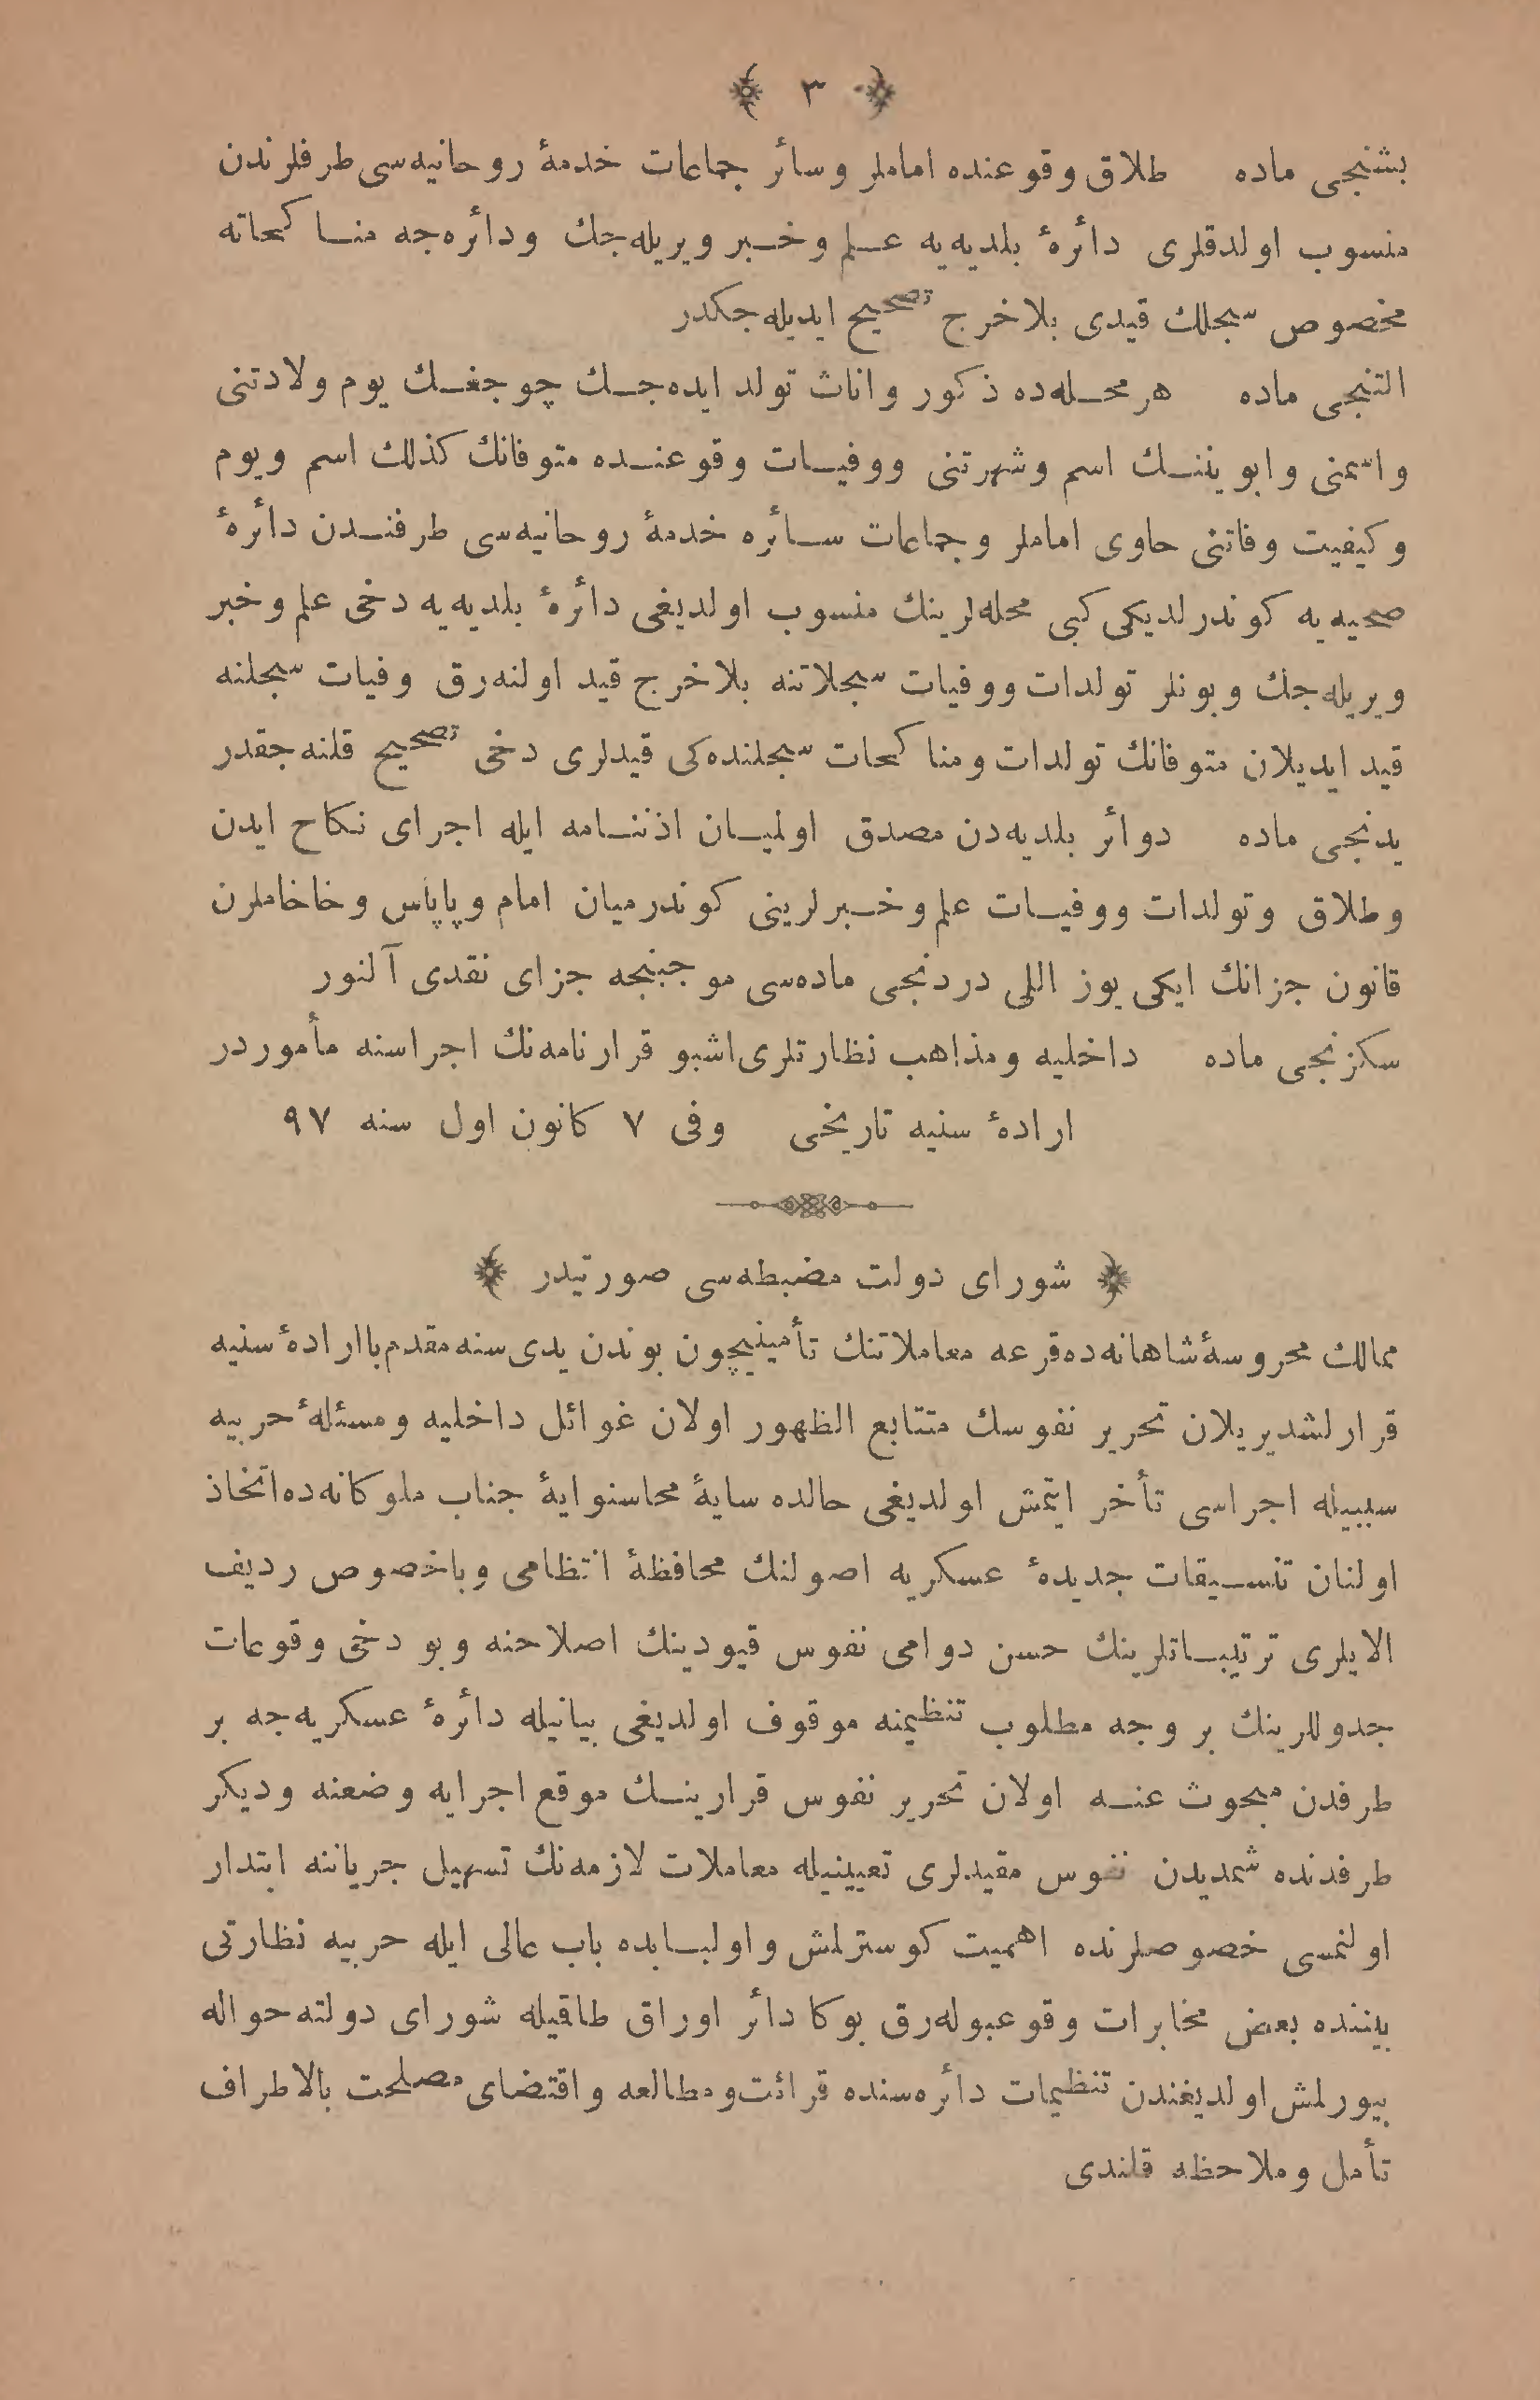 ﴿ ٣ ﴾
بشنجی ماده طلاق وقوعنده اماملر وسائر جماعات خدمۀ روحانیه‌سی طرفلرندن
منسوب اولدقلری دائرۀ بلدیه‌یه علم وخبر ویریله‌جك ودائره‌جه مناكحاته
مخصوص سجلك قیدی بلاخرج تصحیح ایدیله‌جكدر
التنجی ماده هرمحله‌ده ذكور واناث تولد ایده‌جك چوجغك یوم ولادتنی
واسمنی وابویننك اسم وشهرتنی ووفیات وقوعنده متوفانك كذلك اسم ویوم
وكیفیت وفاتنی حاوی اماملر وجماعات سائره خدمۀ روحانیه‌سی طرفندن دائرۀ
صحیه‌یه كوندرلدیكی كبی محله‌لرینك منسوب اولدیغی دائرۀ بلدیه‌یه دخی علم وخبر
ویریله‌جك وبونلر تولدات ووفیات سجلاتنه بلاخرج قید اولنه‌رق وفیات سجلنه
قید ایدیلان متوفانك تولدات ومناكحات سجلنده‌كی قیدلری دخی تصحیح قلنه‌جقدر
یدنجی ماده دوائر بلدیه‌دن مصدق اولمیان اذننامه ایله اجرای نكاح ایدن
وطلاق وتولدات ووفیات علم وخبرلرینی كوندرمیان امام وپاپاس وخاخاملرن
قانون جزانك ایكی یوز اللی دردنجی ماده‌سی موجبنجه جزای نقدی آلنور
سكزنجی ماده داخلیه ومذاهب نظارتلری اشبو قرارنامه‌نك اجراسنه مأموردر
ارادۀ سنیه تاریخی وفی ٧ كانون اول سنه ٩٧
﴿ شورای دولت مضبطه‌سی صورتیدر ﴾
ممالك محروسۀ شاهانه‌ده قرعه معاملاتنك تأمینیچون بوندن یدی سنه مقدم باارادۀ سنیه
قرارلشدیریلان تحریر نفوسك متتابع الظهور اولان غوائل داخلیه ومسئلۀ حربیه
سببیله اجراسی تأخر ایتمش اولدیغی حالده سایۀ محاسنوایۀ جناب ملوكانه‌ده اتخاذ
اولنان تنسیقات جدیدۀ عسكریه اصولنك محافظۀ انتظامی وباخصوص ردیف
الایلری ترتیباتلرینك حسن دوامی نفوس قیودینك اصلاحنه وبو دخی وقوعات
جدوللرینك بر وجه مطلوب تنظیمنه موقوف اولدیغی بیانیله دائرۀ عسكریه‌جه بر
طرفدن مبحوث عنه اولان تحریر نفوس قرارینك موقع اجرایه وضعنه ودیكر
طرفدنده شمدیدن نفوس مقیدلری تعیینیله معاملات لازمه‌نك تسهیل جریاننه ابتدار
اولنمسی خصوصلرنده اهمیت كوسترلمش واولبابده باب عالی ایله حربیه نظارتی
بیننده بعض مخابرات وقوعبوله‌رق بوكا دائر اوراق طاقیله شورای دولته حواله
بیورلمش اولدیغندن تنظیمات دائره‌سنده قرائت ومطالعه واقتضای مصلحت بالاطراف
تأمل وملاحظه قلندی